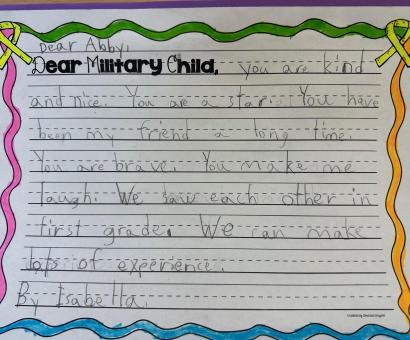 Dear Abby,
Dear Military Child, you are kind
and nice. You are a star. You have
been my friend a long time.
You are brave. You make me
laugh. We saw each other in
first grade. We can make
lots of experience.
By Isabella.